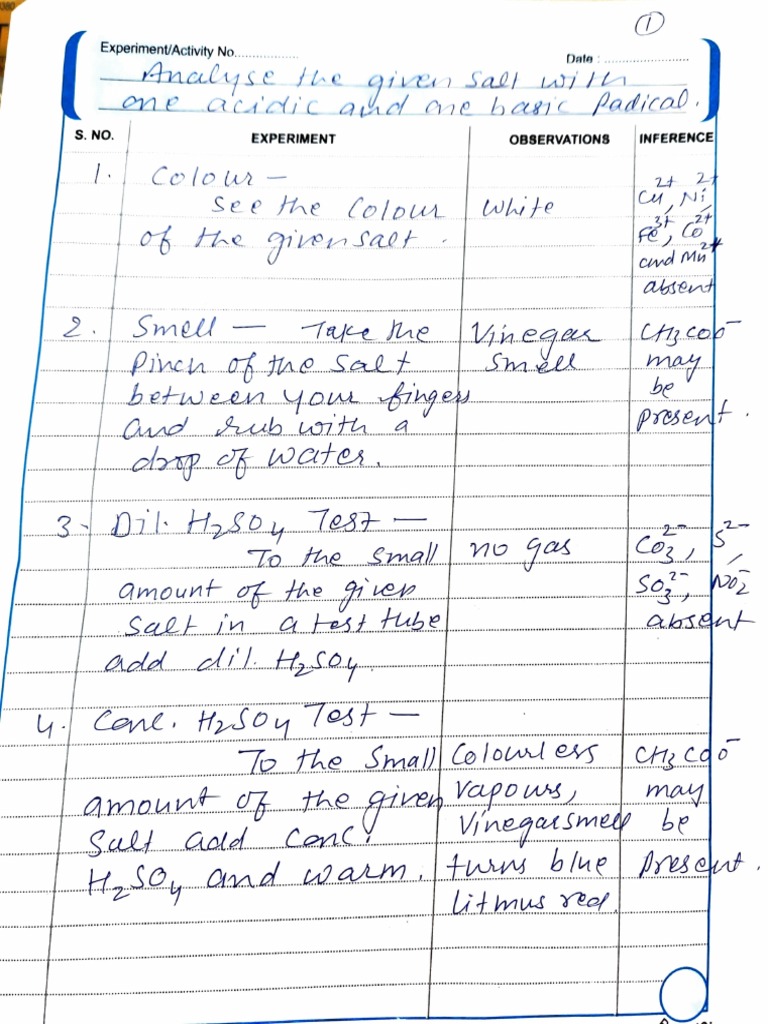 1
Experiment/Activity No..............
Date : ......................
Analyse the given salt with
one acidic and one basic Radical.
S. NO. EXPERIMENT OBSERVATIONS INFERENCE
1. Colour –
See the Colour White Cu²⁺, Ni²⁺,
of the given salt. Fe³⁺, Co²⁺
and Mn²⁺
absent
2. Smell — Take the Vinegar CH₃COO⁻
Pinch of the salt smell may
between your fingers be
and rub with a present.
drop of water.
3- Dil. H₂SO₄ Test —
To the small no gas CO₃²⁻, S²⁻,
amount of the given SO₃²⁻, NO₂⁻
salt in a test tube absent
add dil. H₂SO₄.
4. Conc. H₂SO₄ Test —
To the Small Colourless CH₃COO⁻
amount of the given vapours, may
Salt add conc. Vinegar smell be
H₂SO₄ and warm. turns blue present.
litmus red.